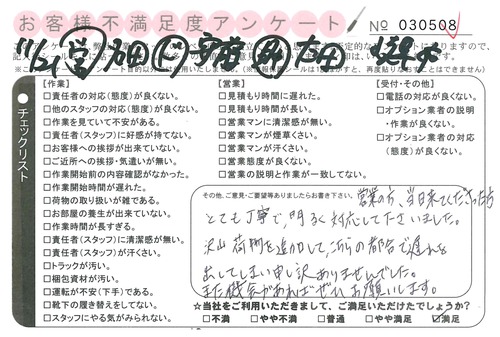 お客様不満足度アンケート
No 030508
チェックリスト
【作業】
□責任者の対応(態度)が良くない。
□他のスタッフの対応(態度)が良くない。
□作業を見ていて不安がある。
□責任者(スタッフ)に好感が持てない。
□お客様への挨拶が出来ていない。
□ご近所への挨拶・気遣いが無い。
□作業開始前の内容確認がなかった。
□作業開始時間が遅れた。
□荷物の取り扱いが雑である。
□お部屋の養生が出来ていない。
□作業時間が長すぎる。
□責任者(スタッフ)に清潔感が無い。
□責任者(スタッフ)が汗くさい。
□トラックが汚い。
□梱包資材が汚い。
□運転が不安(下手)である。
□靴下の履き替えをしてない。
□スタッフにやる気がみられない。
【営業】
□見積もり時間に遅れた。
□見積もり時間が長い。
□営業マンに清潔感が無い。
□営業マンが煙草くさい。
□営業マンが汗くさい。
□営業態度が良くない。
□営業の説明と作業が一致してない。
【受付・その他】
□電話の対応が良くない。
□オプション業者の説明
・作業が良くない。
□オプション業者の対応
(態度)が良くない。
その他、ご意見・ご要望等ありましたらお書き下さい。営業の方、当日来てくださった方
とても丁寧で、明るく対応して下さいました。
沢山荷物を追加して、こちらの都合で遅れを
出してしまい申し訳ありませんでした。
また機会があればぜひお願いします。
☆当社をご利用いただきまして、ご満足いただけたでしょうか?
□不満 □やや不満 □普通 □やや満足 ☑満足